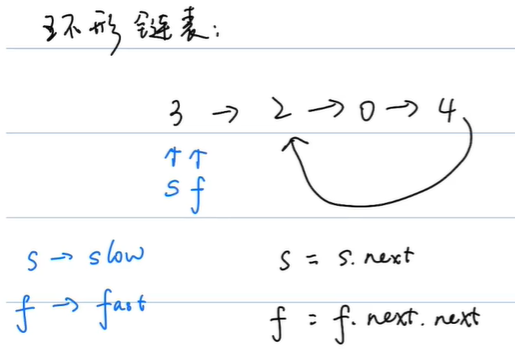 环形链表:
3 → 2 → 0 → 4
↑ ↑
s f
s → slow
f → fast
s = s.next
f = f.next.next